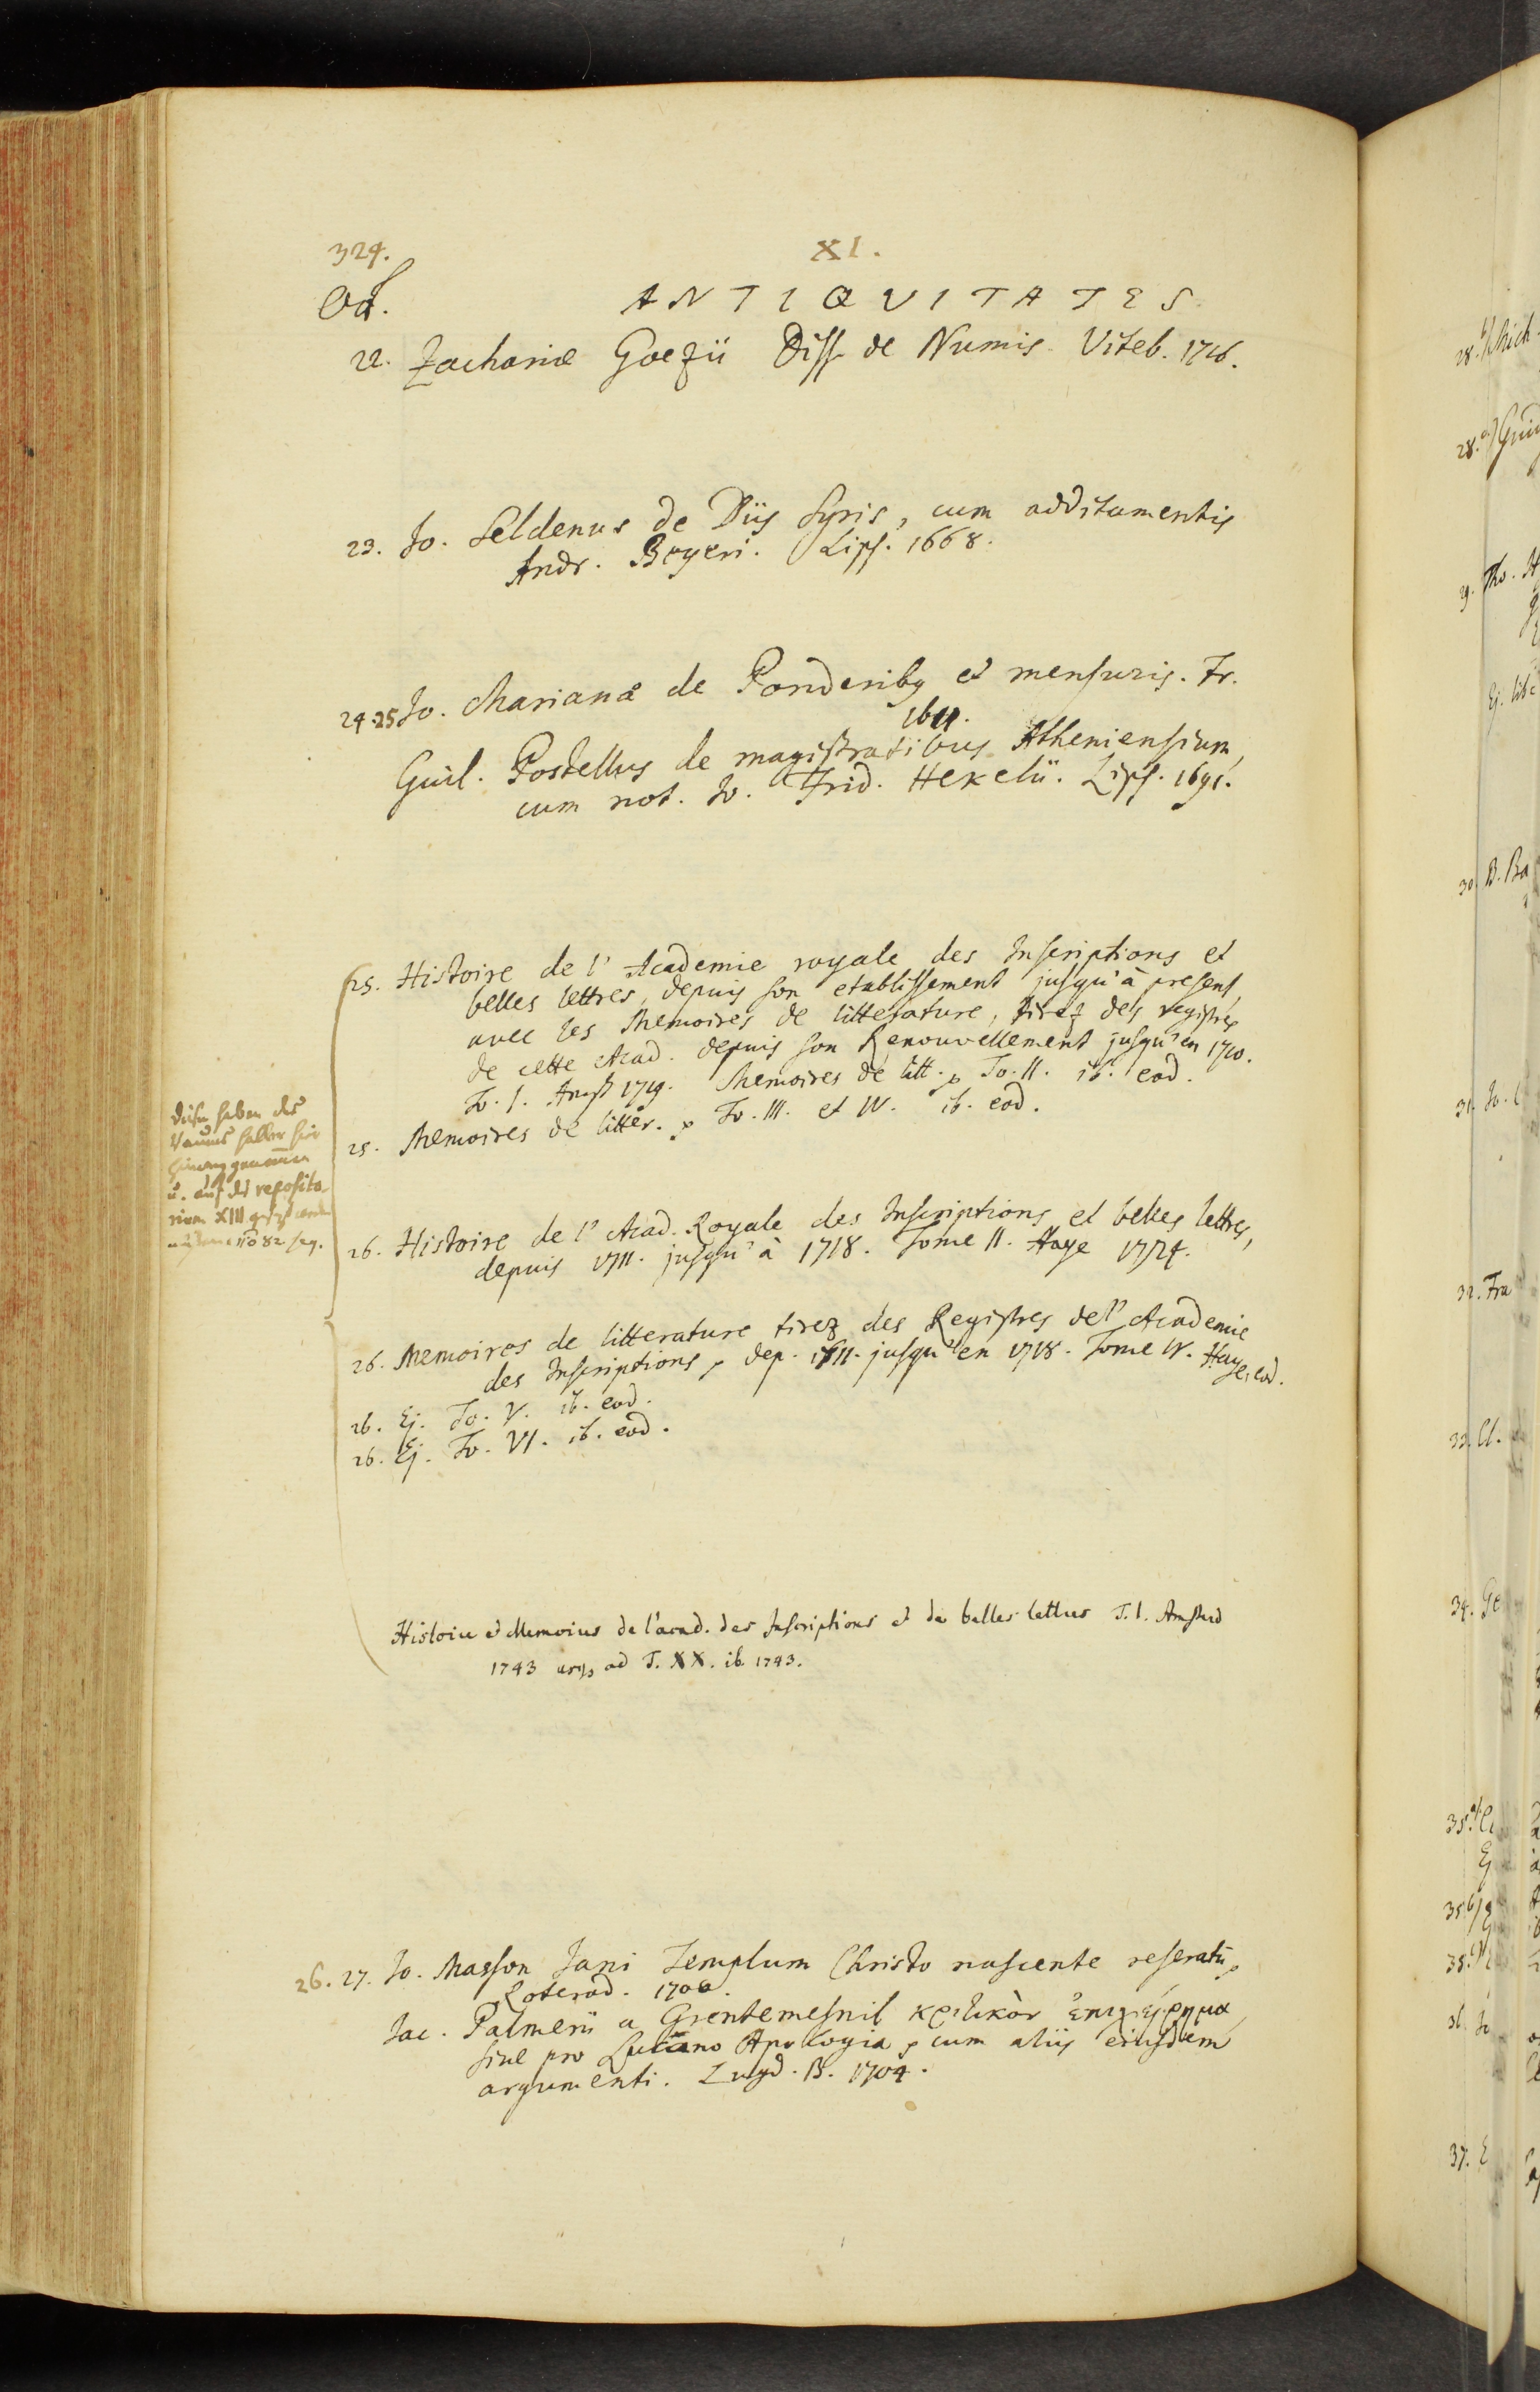 324. XI.
Od. ANTIQUITATES
22. Zachariæ Goezii Diss. de Numis. Viteb. 1716.
23. Jo. Seldenus de Diis Syris, cum additamentis
Andr. Beyeri. Lips. 1668.
24.25 Jo. Mariana de Ponderibg et mensuris. Fr.
1611.
Guil. Postellus de magistratibus Atheniensium,
cum not. Jo. Frid. Hekelii. Lips. 1691.
25. Histoire de l'Academie royale des Inscriptions et
belles lettres, depuis son etablissement jusqu'à present,
avec les Memoires de litterature, tirez des registres
de cette Acad. depuis son Renouvellement jusqu'en 1710.
To. I. Amst 1719. Memoires de litt. To. II. ib. eod.
25. Memoires de litter. To. III. et IV. ib. eod.
haben des
u. auf das reposito-
rium XIII
no 82 seq.
26. Histoire de l'Acad. Royale des Inscriptions et belles lettres,
depuis 1711. jusqu'à 1718. Tome II. Haye 1724.
26. Memoires de litterature tirez des Registres de l'Academie
des Inscriptions, dep. 1711. jusqu'en 1718. Tome IV. Haye, eod.
26. Ej. To. V. ib. eod.
26. Ej. To. VI. ib. eod.
Histoire et Memoires de l'acad. des Inscriptions et de belles lettres T. I. Amsterd
1743 usqs ad T. XX. ib. 1743.
26. 27. Jo. Masson Jani Templum Christo nascente reseratū
Roterod. 1700.
Jac. Palmerii a Grentemesnil κριτικὸν ἐπιχείρημα
sive pro Lucano Apologia cum aliis eiusdem
argumenti. Lugd. B. 1704.